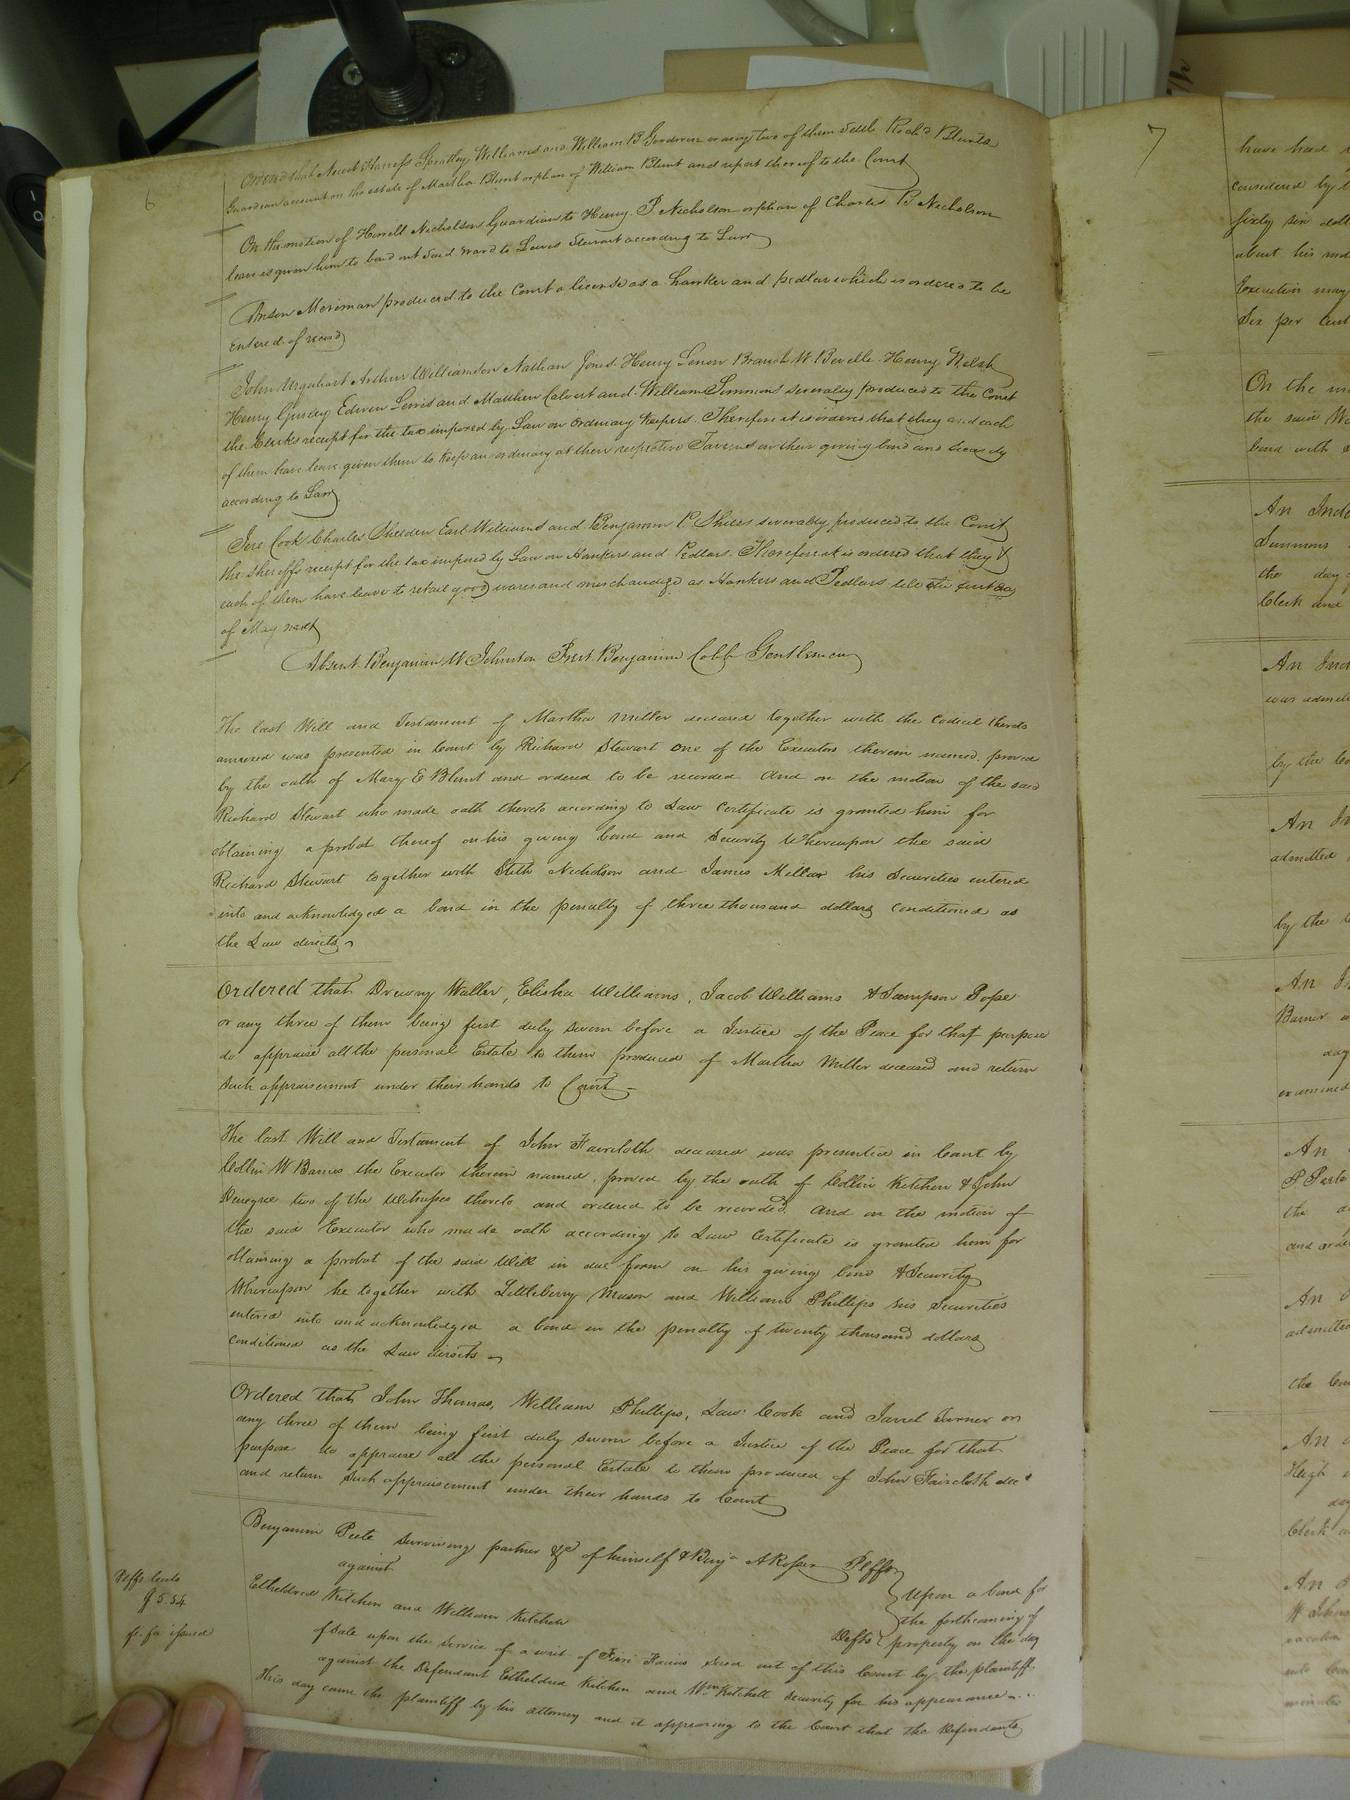 6
Ordered that Newit Harris Spratley Williams and William B Goodwin or any two of them settle Rich'd Blunts
Guardian account on the estate of Martha Blunt orphan of William Blunt and report thereof to the Court
On the motion of Howell Nicholson Guardian to Henry P Nicholson orphan of Charles B Nicholson
leave is given him to bind out said ward to Lewis Stewart according to Law
Anson Meriman produced to the Court a license as a hawker and pedlar which is ordered to be
entered of record
John Urquhart Arthur Williamson Nathan Jones Henry Simon Branch W. Bevelle Henry Welsh
Henry Gurley Edwin Lewis and Matthew Calvert and William Simmons severally produced to the Court
the Clerks receipt for the tax imposed by Law on ordinary Keepers. Therefore it is ordered that they and each
of them have leave given them to keep an ordinary at their respective Taverns on their giving bond and Security
according to Law
Jere Cook Charles Shelden Earl Williams and Benjamin P Shiers severally produced to the Court
the sheriffs receipt for the tax imposed by Law on Hawkers and Pedlars. Therefore it is ordered that they &
each of them have leave to retail good wares and merchandize as Hawkers and Pedlars till the first day
of May next
Absent Benjamin W Johnston Prest. Benjamin Cobb Gentlemen
The last Will and Testament of Martha Miller deceased together with the Codicil thereto
annexed was presented in Court by Richard Stewart one of the Executors therein named, proved
by the oath of Mary E Blunt and ordered to be recorded And on the motion of the said
Richard Stewart who made oath thereto according to Law Certificate is granted him for
obtaining a probat thereof on his giving bond and Security Whereupon the said
Richard Stewart together with Stith Nicholson and James Millar his Securities entered
into and acknowledged a bond in the penalty of three thousand dollars Conditioned as
the Law directs
Ordered that Drewry Waller, Elisha Williams, Jacob Williams & Sampson Pope
or any three of them being first duly sworn before a Justice of the Peace for that purpose
do appraise all the personal Estate to them produced of Martha Miller deceased and return
such appraisement under their hands to Court
The last Will and Testament of John Faircloth deceased was presented in Court by
Collin W Barnes the Executor therein named, proved by the oath of Collin Kitchen & John
two of the Witnesses thereto and ordered to be recorded. And on the motion of
the said Executor who made oath according to Law Certificate is granted him for
obtaining a probat of the said Will in due form on his giving bond & Security
Whereupon he together with Littleberry Mason and William Phillips his Securities
entered into and acknowledged a bond in the penalty of twenty thousand dollars
conditioned as the Law directs
Ordered that John Thomas, William Phillips, Law: Cook and Jarrel Turner or
any three of them being first duly sworn before a Justice of the Peace for that
purpose do appraise all the personal Estate to them produced of John Faircloth decd
and return such appraisement under their hands to Court
Benjamin Peete surviving partner &c of himself & Benja A Rosser Plffs
against
Etheldred Kitchen and William Kitchen Defts
Plffs Costs
$ 5.54
fi. fa issued
Upon a bond for
the forthcoming of
property on the day
of sale upon the service of a writ of Fieri Facias sued out of this Court by the plaintiff
against the Defendant Etheldred Kitchen and Wm Kitchell security for his appearance
This day came the plaintiff by his attorney and it appearing to the Court that the Defendants
7
have had
considered by
sixty six doll
about his
Execution may
Six per Cent
On the m
the said
bond with
An Inde
Summons
the day
Clerk and
An Ind
was admit
by the Co
An In
admitted
by the
An In
Barner
day
examined
An
P
the
and order
An
admitted
the Cou
An
Hugh
day
Clerk a
An
W John